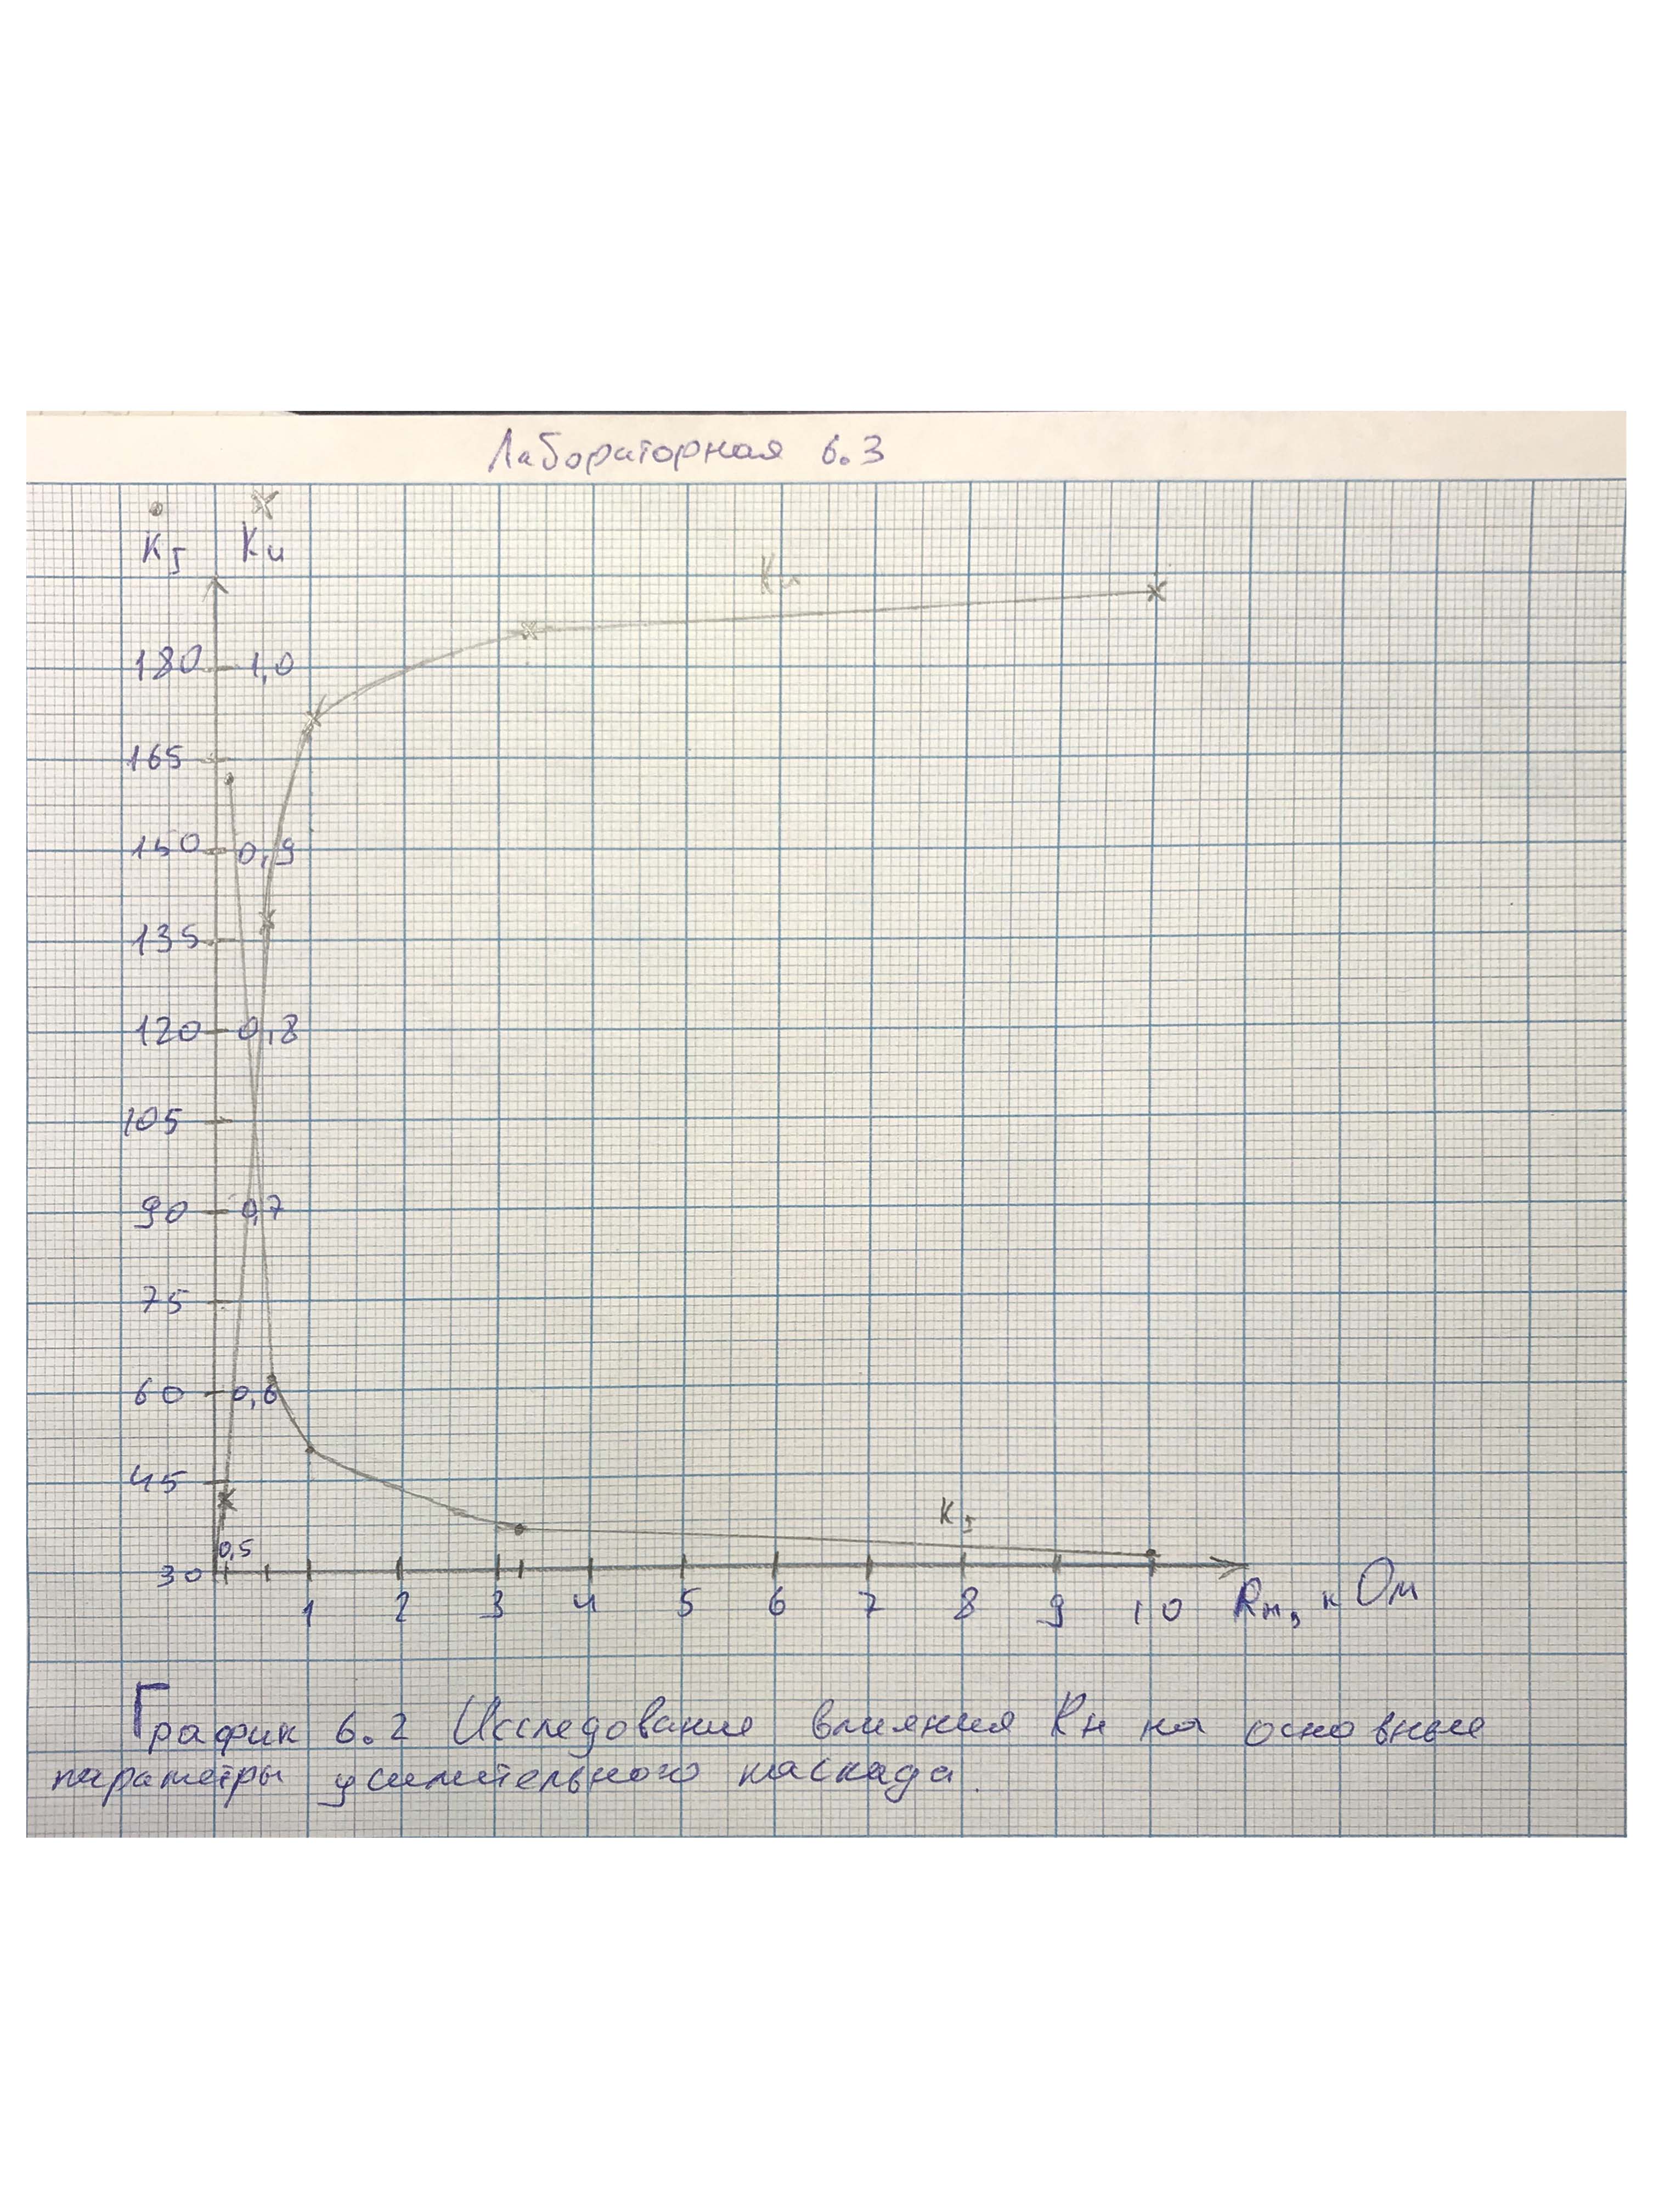 Лабораторная 6.3
K_I K_u
K_u
180 1,0
165
150 0,9
135
120 0,8
105
90 0,7
75
60 0,6
45
K_I
0,5
30
1 2 3 4 5 6 7 8 9 10 Rн, кОм
График 6.2 Исследование влияния Rн на основные
параметры усилительного каскада.